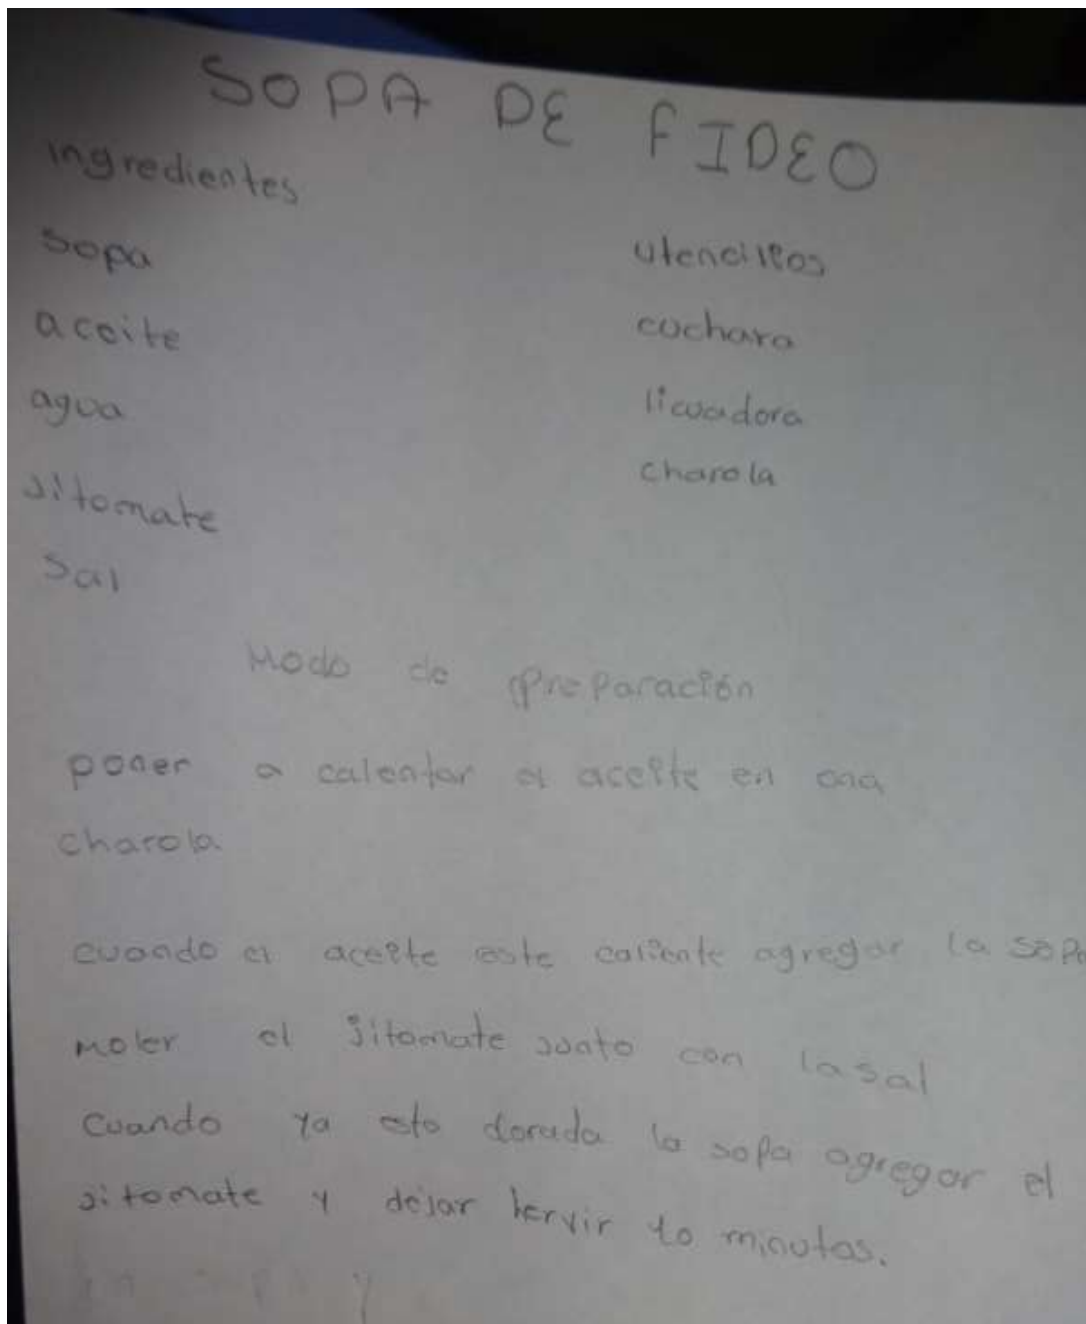 SOPA DE FIDEO
ingredientes
sopa
utencillos
aceite
cuchara
agua
licuadora
charola
jitomate
sal
Modo de Preparación
poner a calentar el aceite en una
charola
cuando el aceite este caliente agregar la sopa
moler el jitomate junto con la sal
cuando ya este dorada la sopa agregar el
jitomate y dejar hervir 10 minutos.